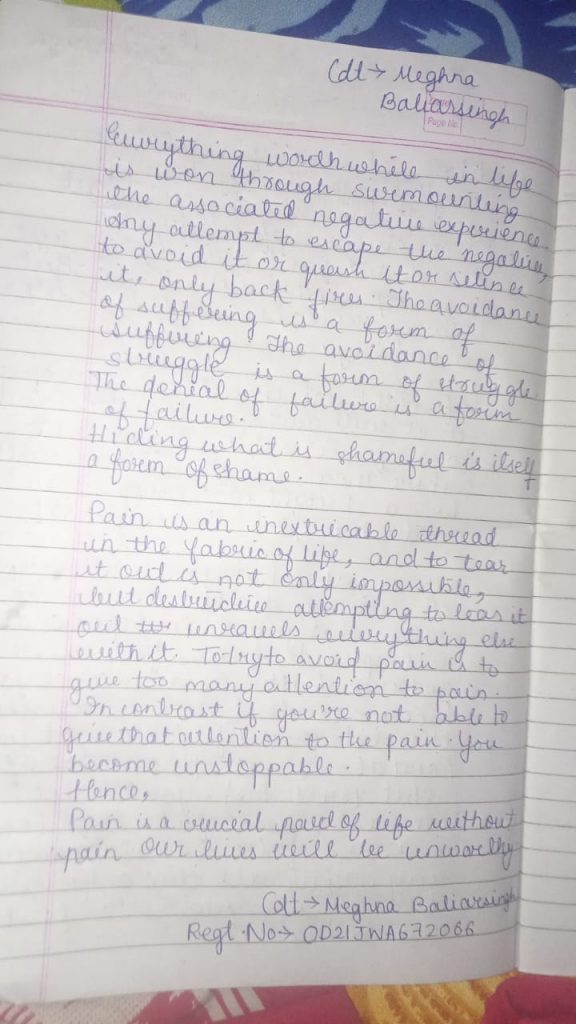 Cdt → Meghna
Baliarsingh
Page No.
Everything worthwhile in life
is won through surmounting
the associated negative experience.
Any attempt to escape the negative,
to avoid it or quash it or silence
it, only back fires. The avoidance
of suffering is a form of
suffering. The avoidance of
struggle is a form of struggle.
The denial of failure is a form
of failure.
Hiding what is shameful is itself
a form of shame.
Pain is an inextricable thread
in the fabric of life, and to tear
it out is not only impossible,
but destructive attempting to tear it
out unravels everything else
with it. To try to avoid pain is to
give too many attention to pain.
In contrast if you're not able to
give that attention to the pain. You
become unstoppable.
Hence,
Pain is a crucial part of life without
pain our lives will be unworthy
Cdt → Meghna Baliarsingh
Regt. No → OD21JWA672066